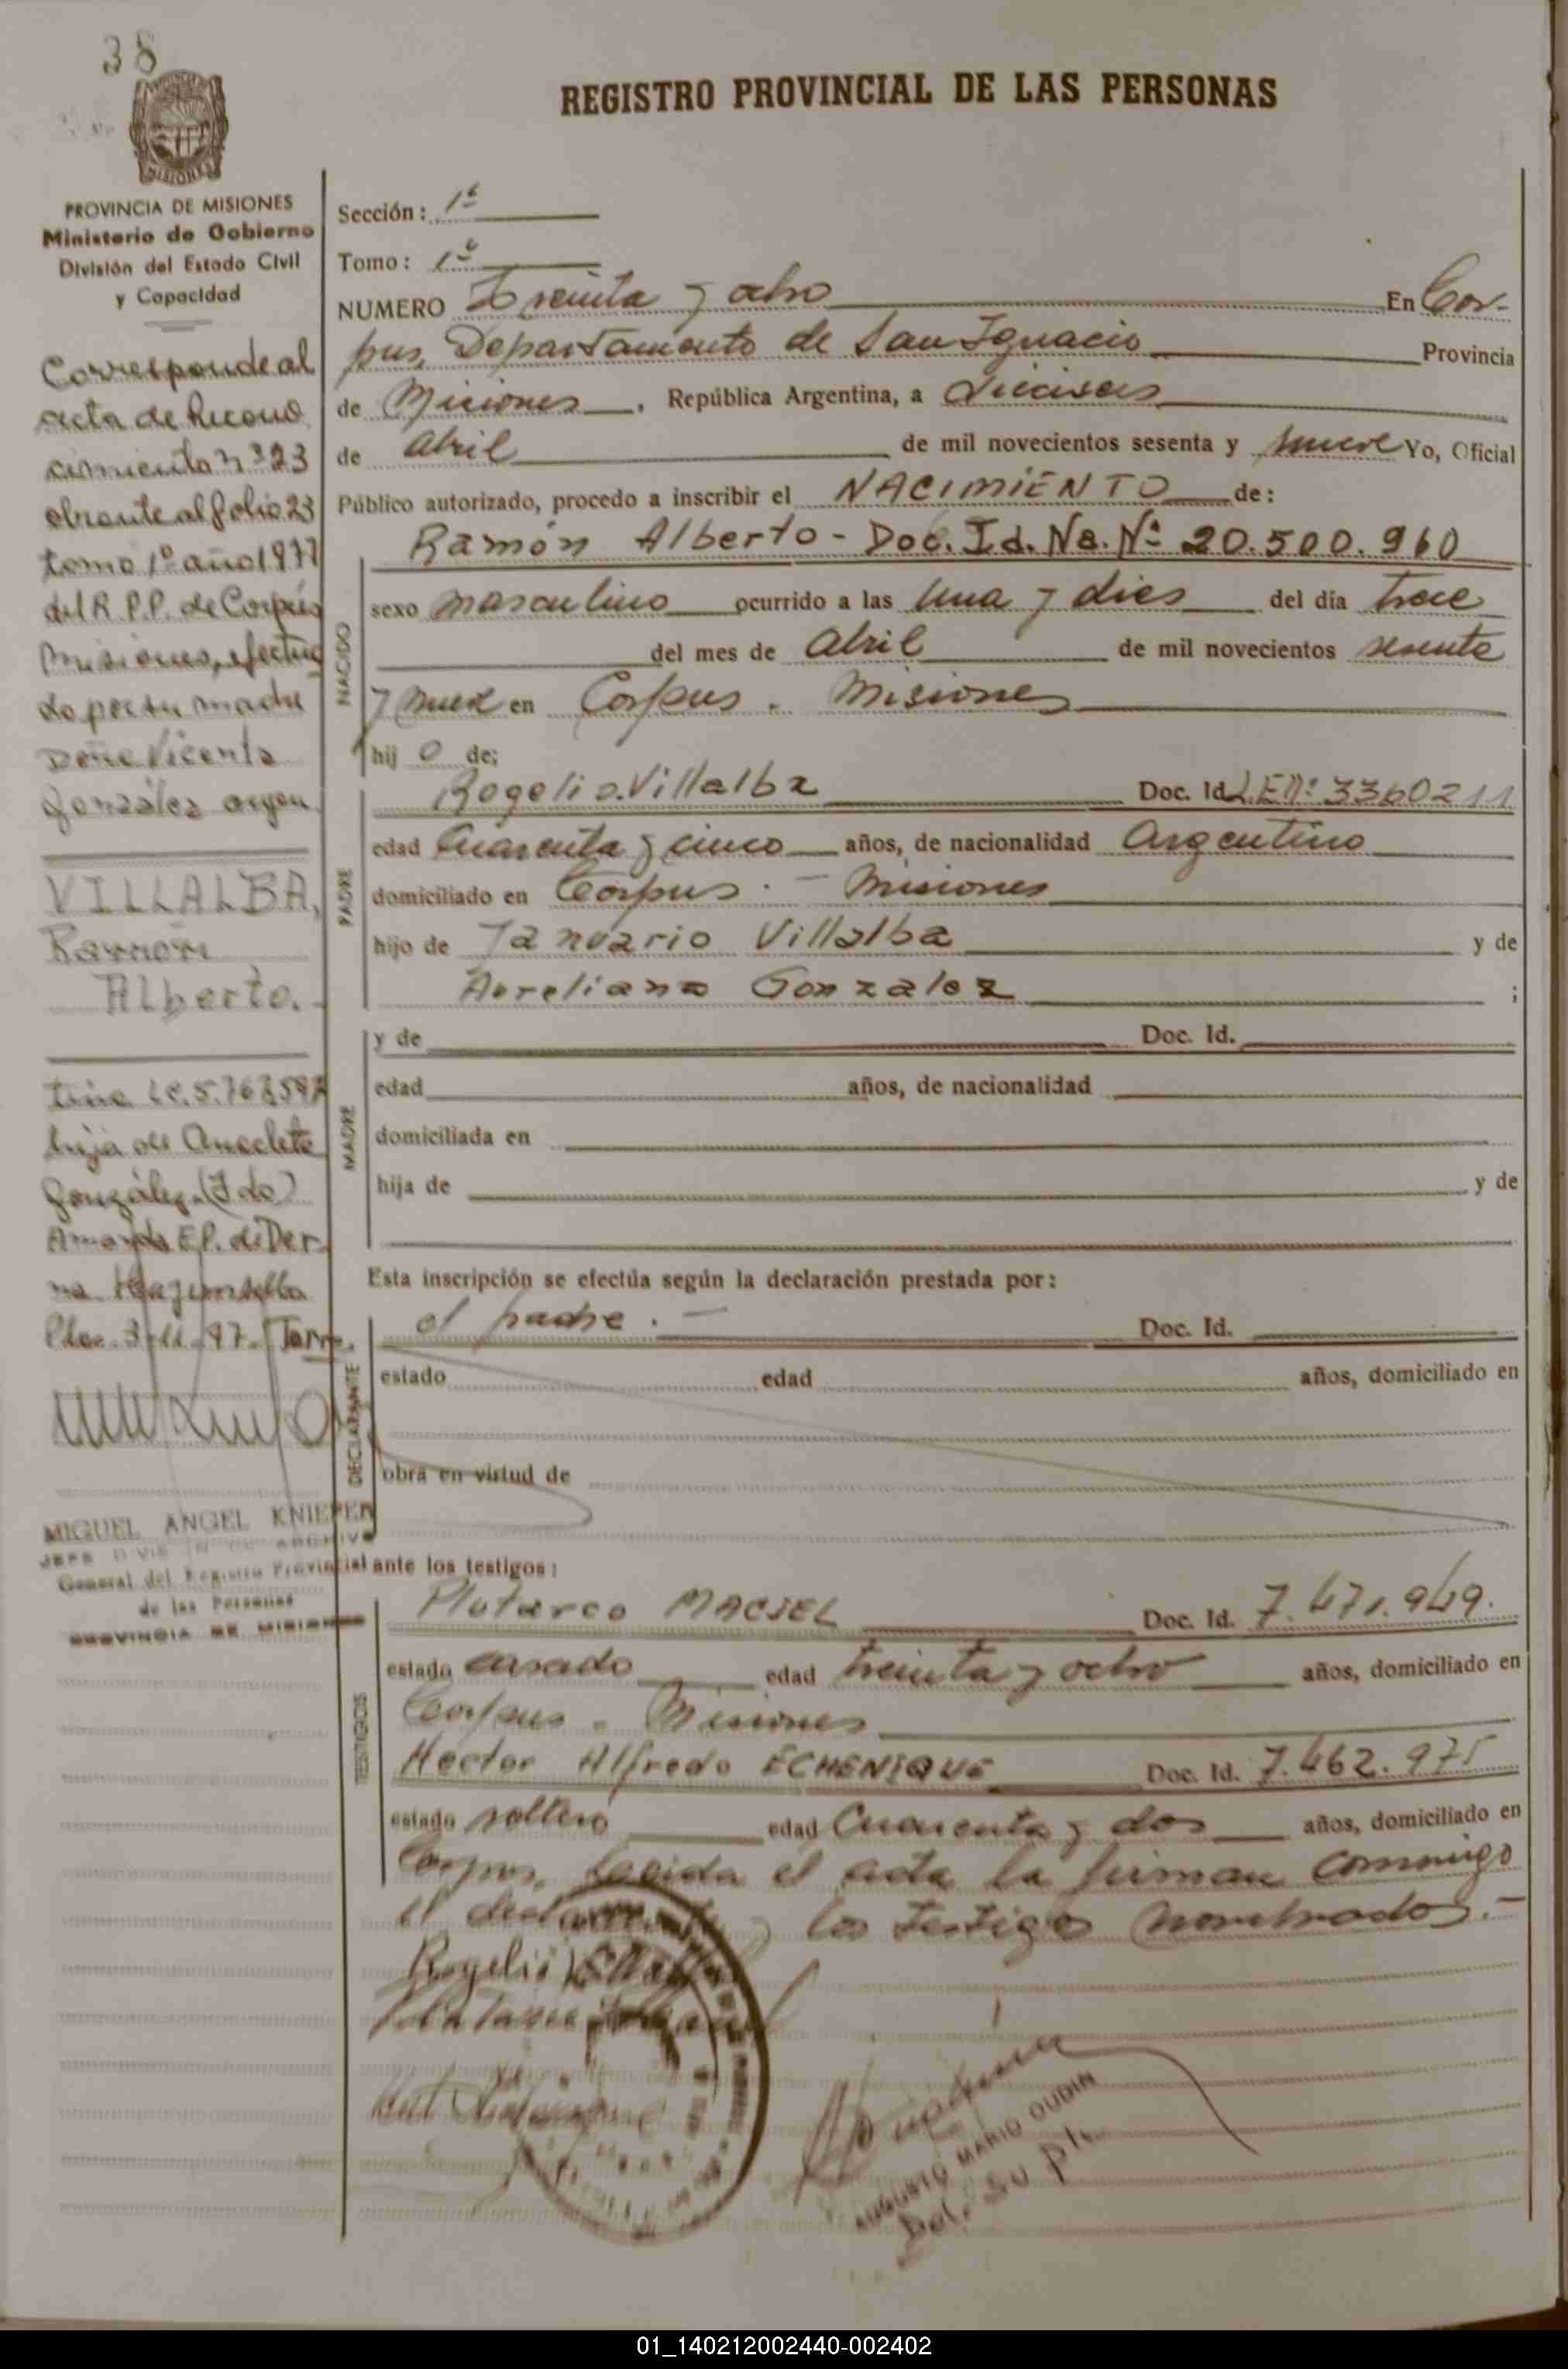 38
REGISTRO PROVINCIAL DE LAS PERSONAS
MISIONES
PROVINCIA DE MISIONES
Ministerio de Gobierno
División del Estado Civil
y Capacidad
Corresponde al
acta de Recono
cimiento nº 23
obrante al folio 23
tomo 1º año 1977
del R.P.P. de Corpus
Misiones, efectua
do por su madre
Doña Vicenta
González argen
VILLALBA,
Ramón
Alberto.
tina LC. 5.767.597
hija de Anacleta
González. (Fdo)
Amanda E P. de Der
na. Hay un sello
MIGUEL ANGEL KNIEPER
General del Registro Provincial
de las Personas
PROVINCIA DE MISIONES
Sección: 1ª
Tomo: 1º
NUMERO Treinta y ocho En Cor-
pus, Departamento de San Ignacio Provincia
de Misiones, República Argentina, a dieciseis
de abril de mil novecientos sesenta y nueve Yo, Oficial
Público autorizado, procedo a inscribir el NACIMIENTO de:
NACIDO
Ramón Alberto - Doc. Id. Na. Nº 20.500.960
sexo masculino ocurrido a las una y dies del día trece
del mes de Abril de mil novecientos sesenta
y nueve en Corpus. Misiones
hijo de:
PADRE
Rogelio Villalba Doc. Id. L.E. nº 3360211
edad Cuarenta y cinco años, de nacionalidad Argentino
domiciliado en Corpus. - Misiones
hijo de Januario Villalba y de
Aureliana Gonzalez ;
MADRE
y de Doc. Id.
edad años, de nacionalidad
domiciliada en
hija de y de
Esta inscripción se efectúa según la declaración prestada por:
DECLARANTE
el padre. - Doc. Id.
estado edad años, domiciliado en
obra en virtud de
ante los testigos:
TESTIGOS
Plutarco MACIEL Doc. Id. 7.471.949.
estado casado edad treinta y ocho años, domiciliado en
Corpus. Misiones
Hector Alfredo ECHENIQUE Doc. Id. 7.462.975
estado soltero edad Cuarenta y dos años, domiciliado en
Corpus, Leida el acta la firman conmigo
el declarante y los testigos nombrados.-
Rogelio Villalba
AUGUSTO MARIO OUDIN
01_140212002440-002402